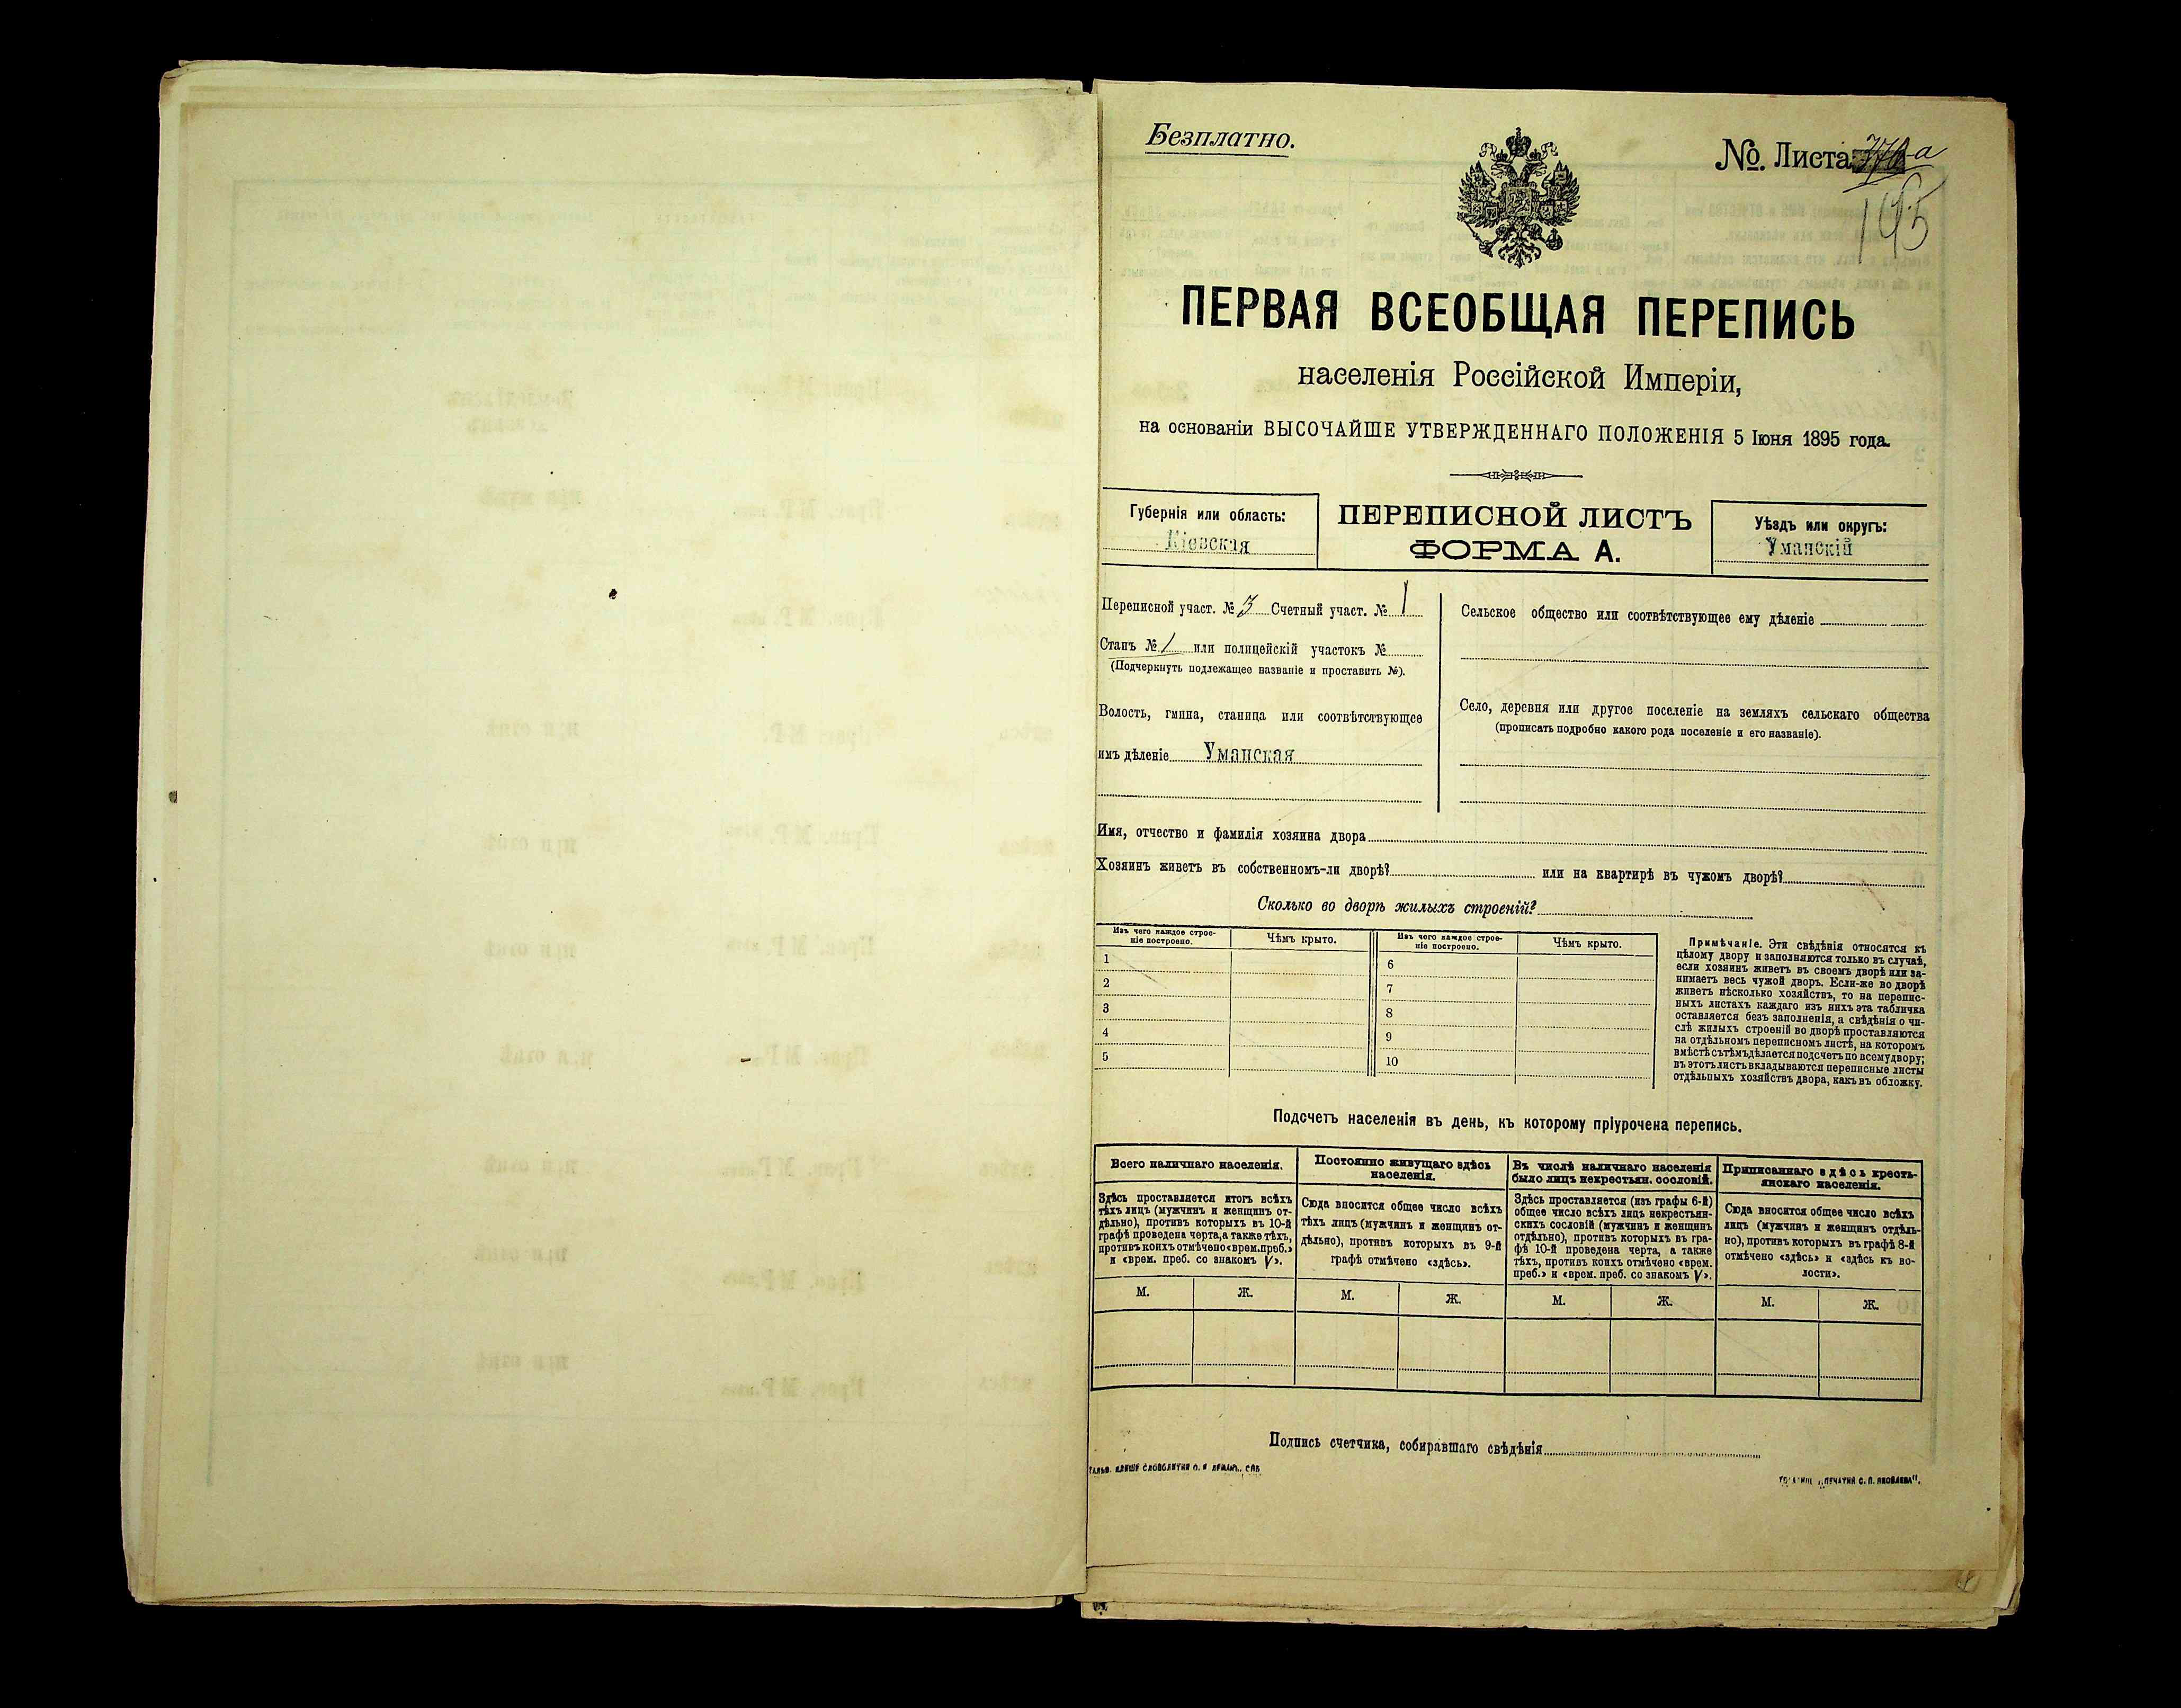 Безплатно.
№. Листа
195
ПЕРВАЯ ВСЕОБЩАЯ ПЕРЕПИСЬ
населенія Россійской Имперіи,
на основаніи ВЫСОЧАЙШЕ УТВЕРЖДЕННАГО ПОЛОЖЕНІЯ 5 Іюня 1895 года.
Губернія или область:
Кіевская
ПЕРЕПИСНОЙ ЛИСТЪ
ФОРМА А.
Уѣздъ или округъ:
Уманскій
Переписной участ. № 3 Счетный участ. № 1
Станъ № 1 или полицейскій участокъ №
(Подчеркнуть подлежащее названіе и проставить №).
Волость, гмина, станица или соотвѣтствующее
имъ дѣленіе Уманская
Сельское общество или соотвѣтствующее ему дѣленіе
Село, деревня или другое поселеніе на земляхъ сельскаго общества
(прописать подробно какого рода поселеніе и его названіе).
Имя, отчество и фамилія хозяина двора
Хозяинъ живетъ въ собственномъ-ли дворѣ? или на квартирѣ въ чужомъ дворѣ?
Сколько во дворѣ жилыхъ строеній?
Изъ чего каждое строе-
ніе построено.
Чѣмъ крыто.
1
2
3
4
5
Изъ чего каждое строе-
ніе построено.
Чѣмъ крыто.
6
7
8
9
10
Примѣчаніе. Эти свѣдѣнія относятся къ
цѣлому двору и заполняются только въ случаѣ,
если хозяинъ живетъ въ своемъ дворѣ или за-
нимаетъ весь чужой дворъ. Если-же во дворѣ
живетъ нѣсколько хозяйствъ, то на перепис-
ныхъ листахъ каждаго изъ нихъ эта табличка
оставляется безъ заполненія, а свѣдѣнія о чи-
слѣ жилыхъ строеній во дворѣ проставляются
на отдѣльномъ переписномъ листѣ, на которомъ
вмѣстѣ съ тѣмъ дѣлается подсчетъ по всему двору;
въ этотъ листъ вкладываются переписные листы
отдѣльныхъ хозяйствъ двора, какъ въ обложку.
Подсчетъ населенія въ день, къ которому пріурочена перепись.
Всего наличнаго населенія.
Здѣсь проставляется итогъ всѣхъ
тѣхъ лицъ (мужчинъ и женщинъ от-
дѣльно), противъ которыхъ въ 10-й
графѣ проведена черта, а также тѣхъ,
противъ коихъ отмѣчено «врем. преб.»
и «врем. преб. со знакомъ V».
М. Ж.
Постоянно живущаго здѣсь
населенія.
Сюда вносится общее число всѣхъ
тѣхъ лицъ (мужчинъ и женщинъ от-
дѣльно), противъ которыхъ въ 9-й
графѣ отмѣчено «здѣсь».
М. Ж.
Въ числѣ наличнаго населенія
было лицъ некрестьян. сословій.
Здѣсь проставляется (изъ графы 6-й)
общее число всѣхъ лицъ некрестьян-
скихъ сословій (мужчинъ и женщинъ
отдѣльно), противъ которыхъ въ гра-
фѣ 10-й проведена черта, а также
тѣхъ, противъ коихъ отмѣчено «врем.
преб.» и «врем. преб. со знакомъ V».
М. Ж.
Приписаннаго здѣсь кресть-
янскаго населенія.
Сюда вносится общее число всѣхъ
лицъ (мужчинъ и женщинъ отдѣль-
но), противъ которыхъ въ графѣ 8-й
отмѣчено «здѣсь» и «здѣсь къ во-
лости».
М. Ж.
Подпись счетчика, собиравшаго свѣдѣнія